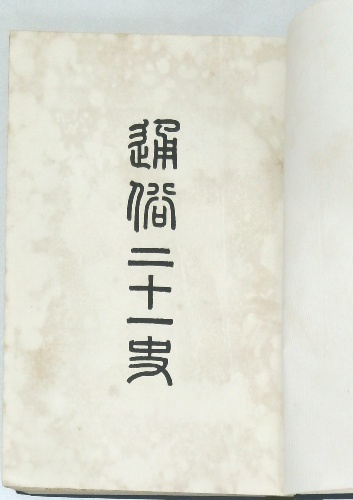 通俗二十一史